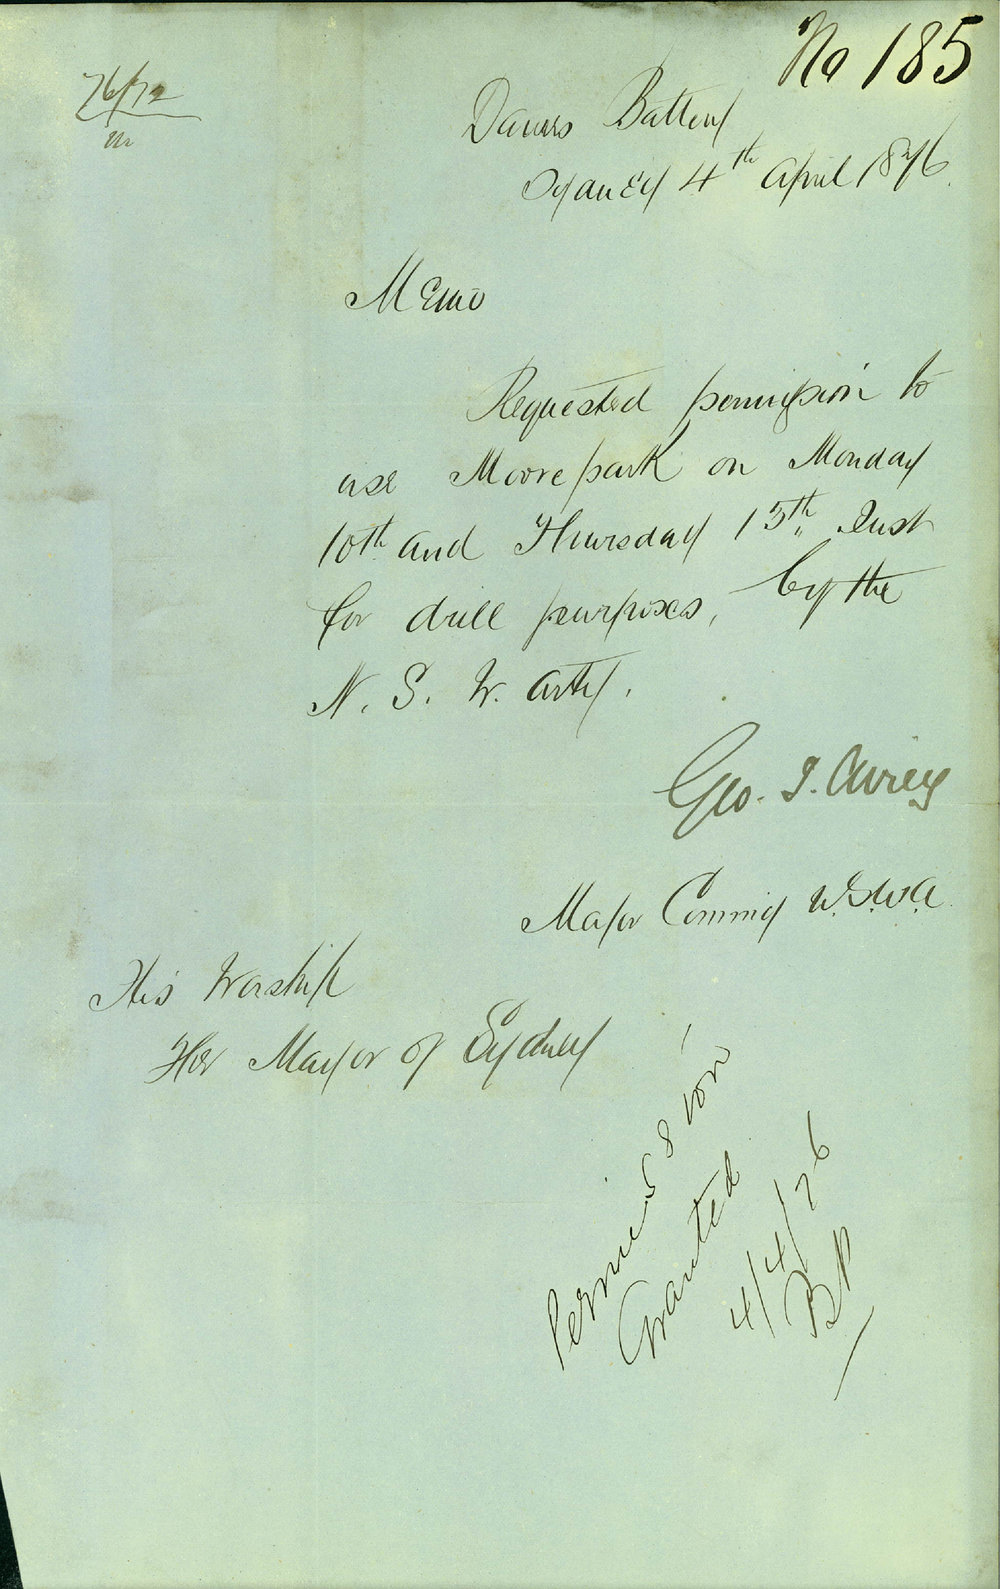 No 185
76/72
Dawes Battery
Sydney 4th April 1876.
Memo
Requested permission to
use Moore park on Monday
10th and Thursday 13th Inst
for drill purposes, by the
N. S. W. Arty.
Geo. J. Airey
Major Commg N.S.W.A.
His Worship
The Mayor of Sydney
Permission
Granted
4/4/76
BP